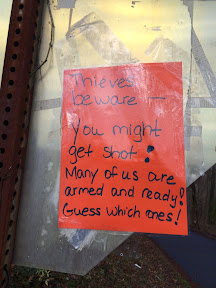 Thieves
beware —
you might
get shot!
Many of us are
armed and ready!
Guess which ones!